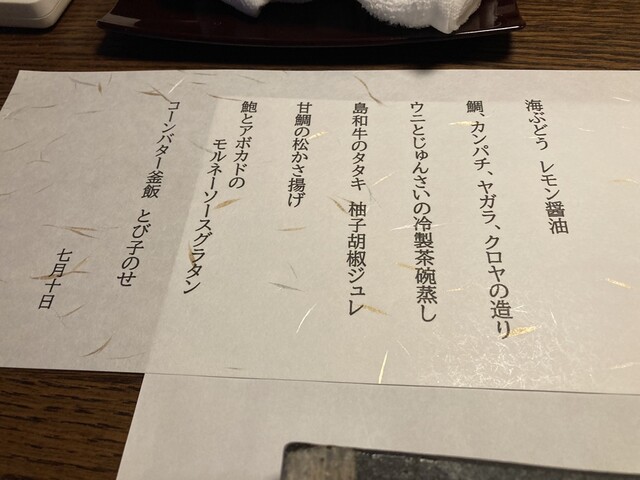 海ぶどう レモン醤油
鯛、カンパチ、ヤガラ、クロヤの造り
ウニとじゅんさいの冷製茶碗蒸し
島和牛のタタキ 柚子胡椒ジュレ
甘鯛の松かさ揚げ
鮑とアボカドの
モルネーソースグラタン
コーンバター釜飯 とび子のせ
七月十日